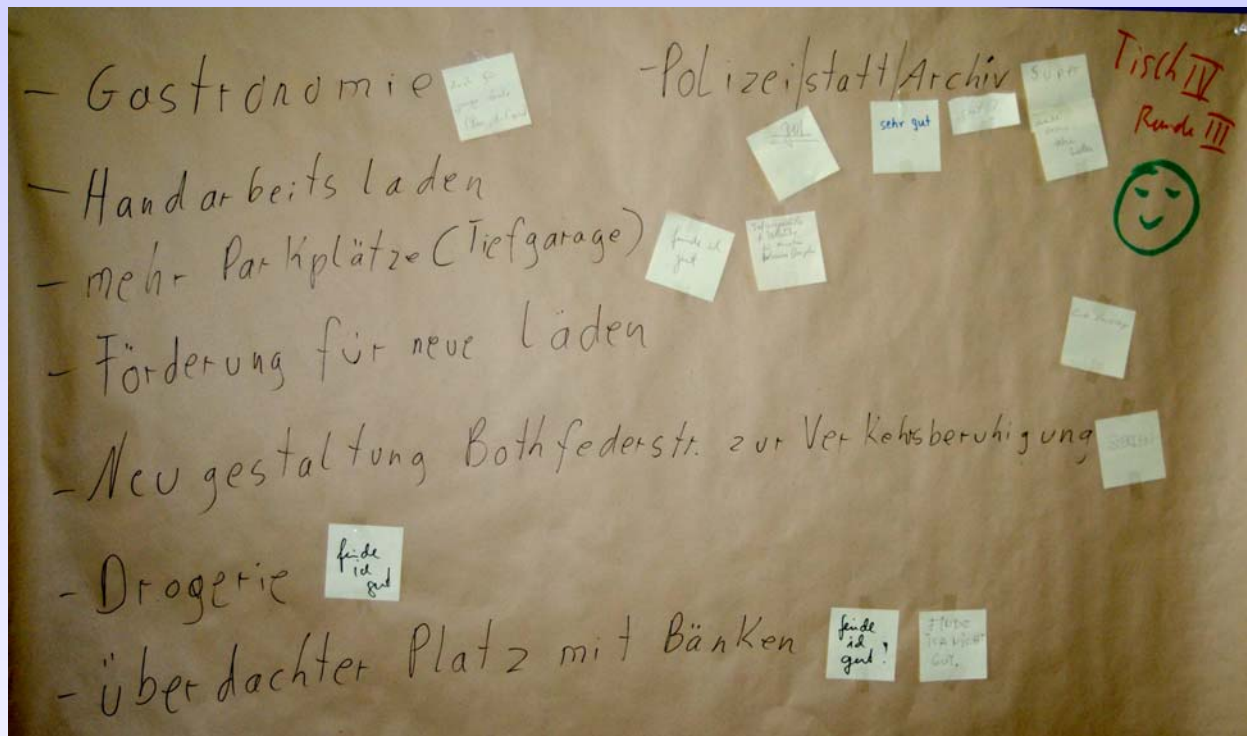 - Gastronomie
- Polizei/statt/Archiv
Tisch IV
Runde III
SUPER
gut
sehr gut
- Handarbeits laden
- mehr Parkplätze (Tiefgarage)
finde ich
gut
- Förderung für neue Läden
- Neugestaltung Bothfederstr. zur Verkehrsberuhigung
- Drogerie
finde
ich
gut
- überdachter Platz mit Bänken
finde
ich
gut!
FINDE
ICH NICHT
GUT.